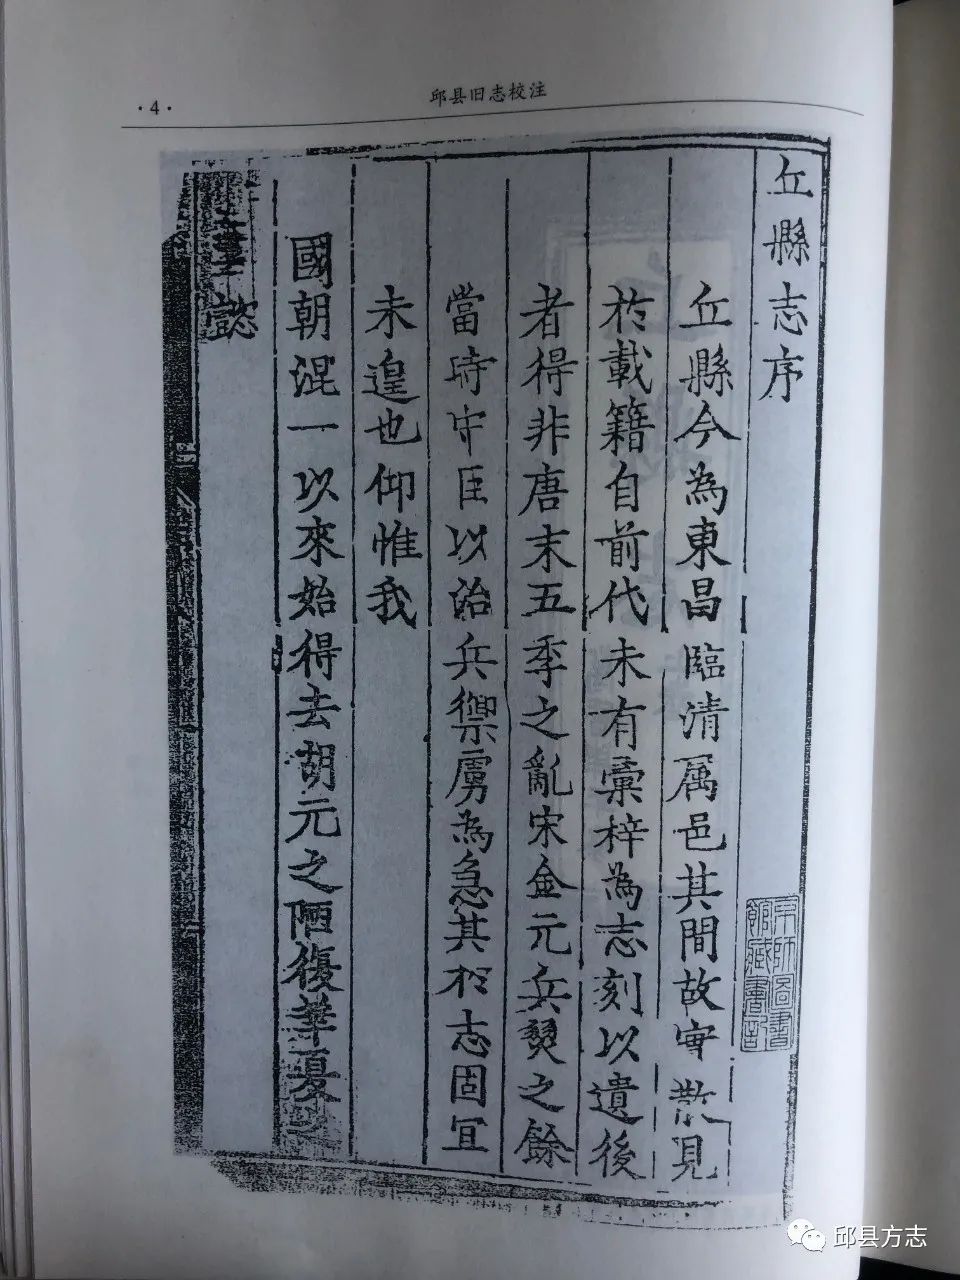 ·4·
邱县旧志校注
丘縣志序
丘縣今為東昌臨清属邑其間故实散見
於載籍自前代未有彙梓為志刻以遺後
者得非唐末五季之亂宋金元兵燹之餘
當時守臣以治兵禦虜為急其於志固宜
未遑也仰惟我
國朝混一以來始得去胡元之陋復華夏之
懿
京師圖書
館藏書記
邱县方志